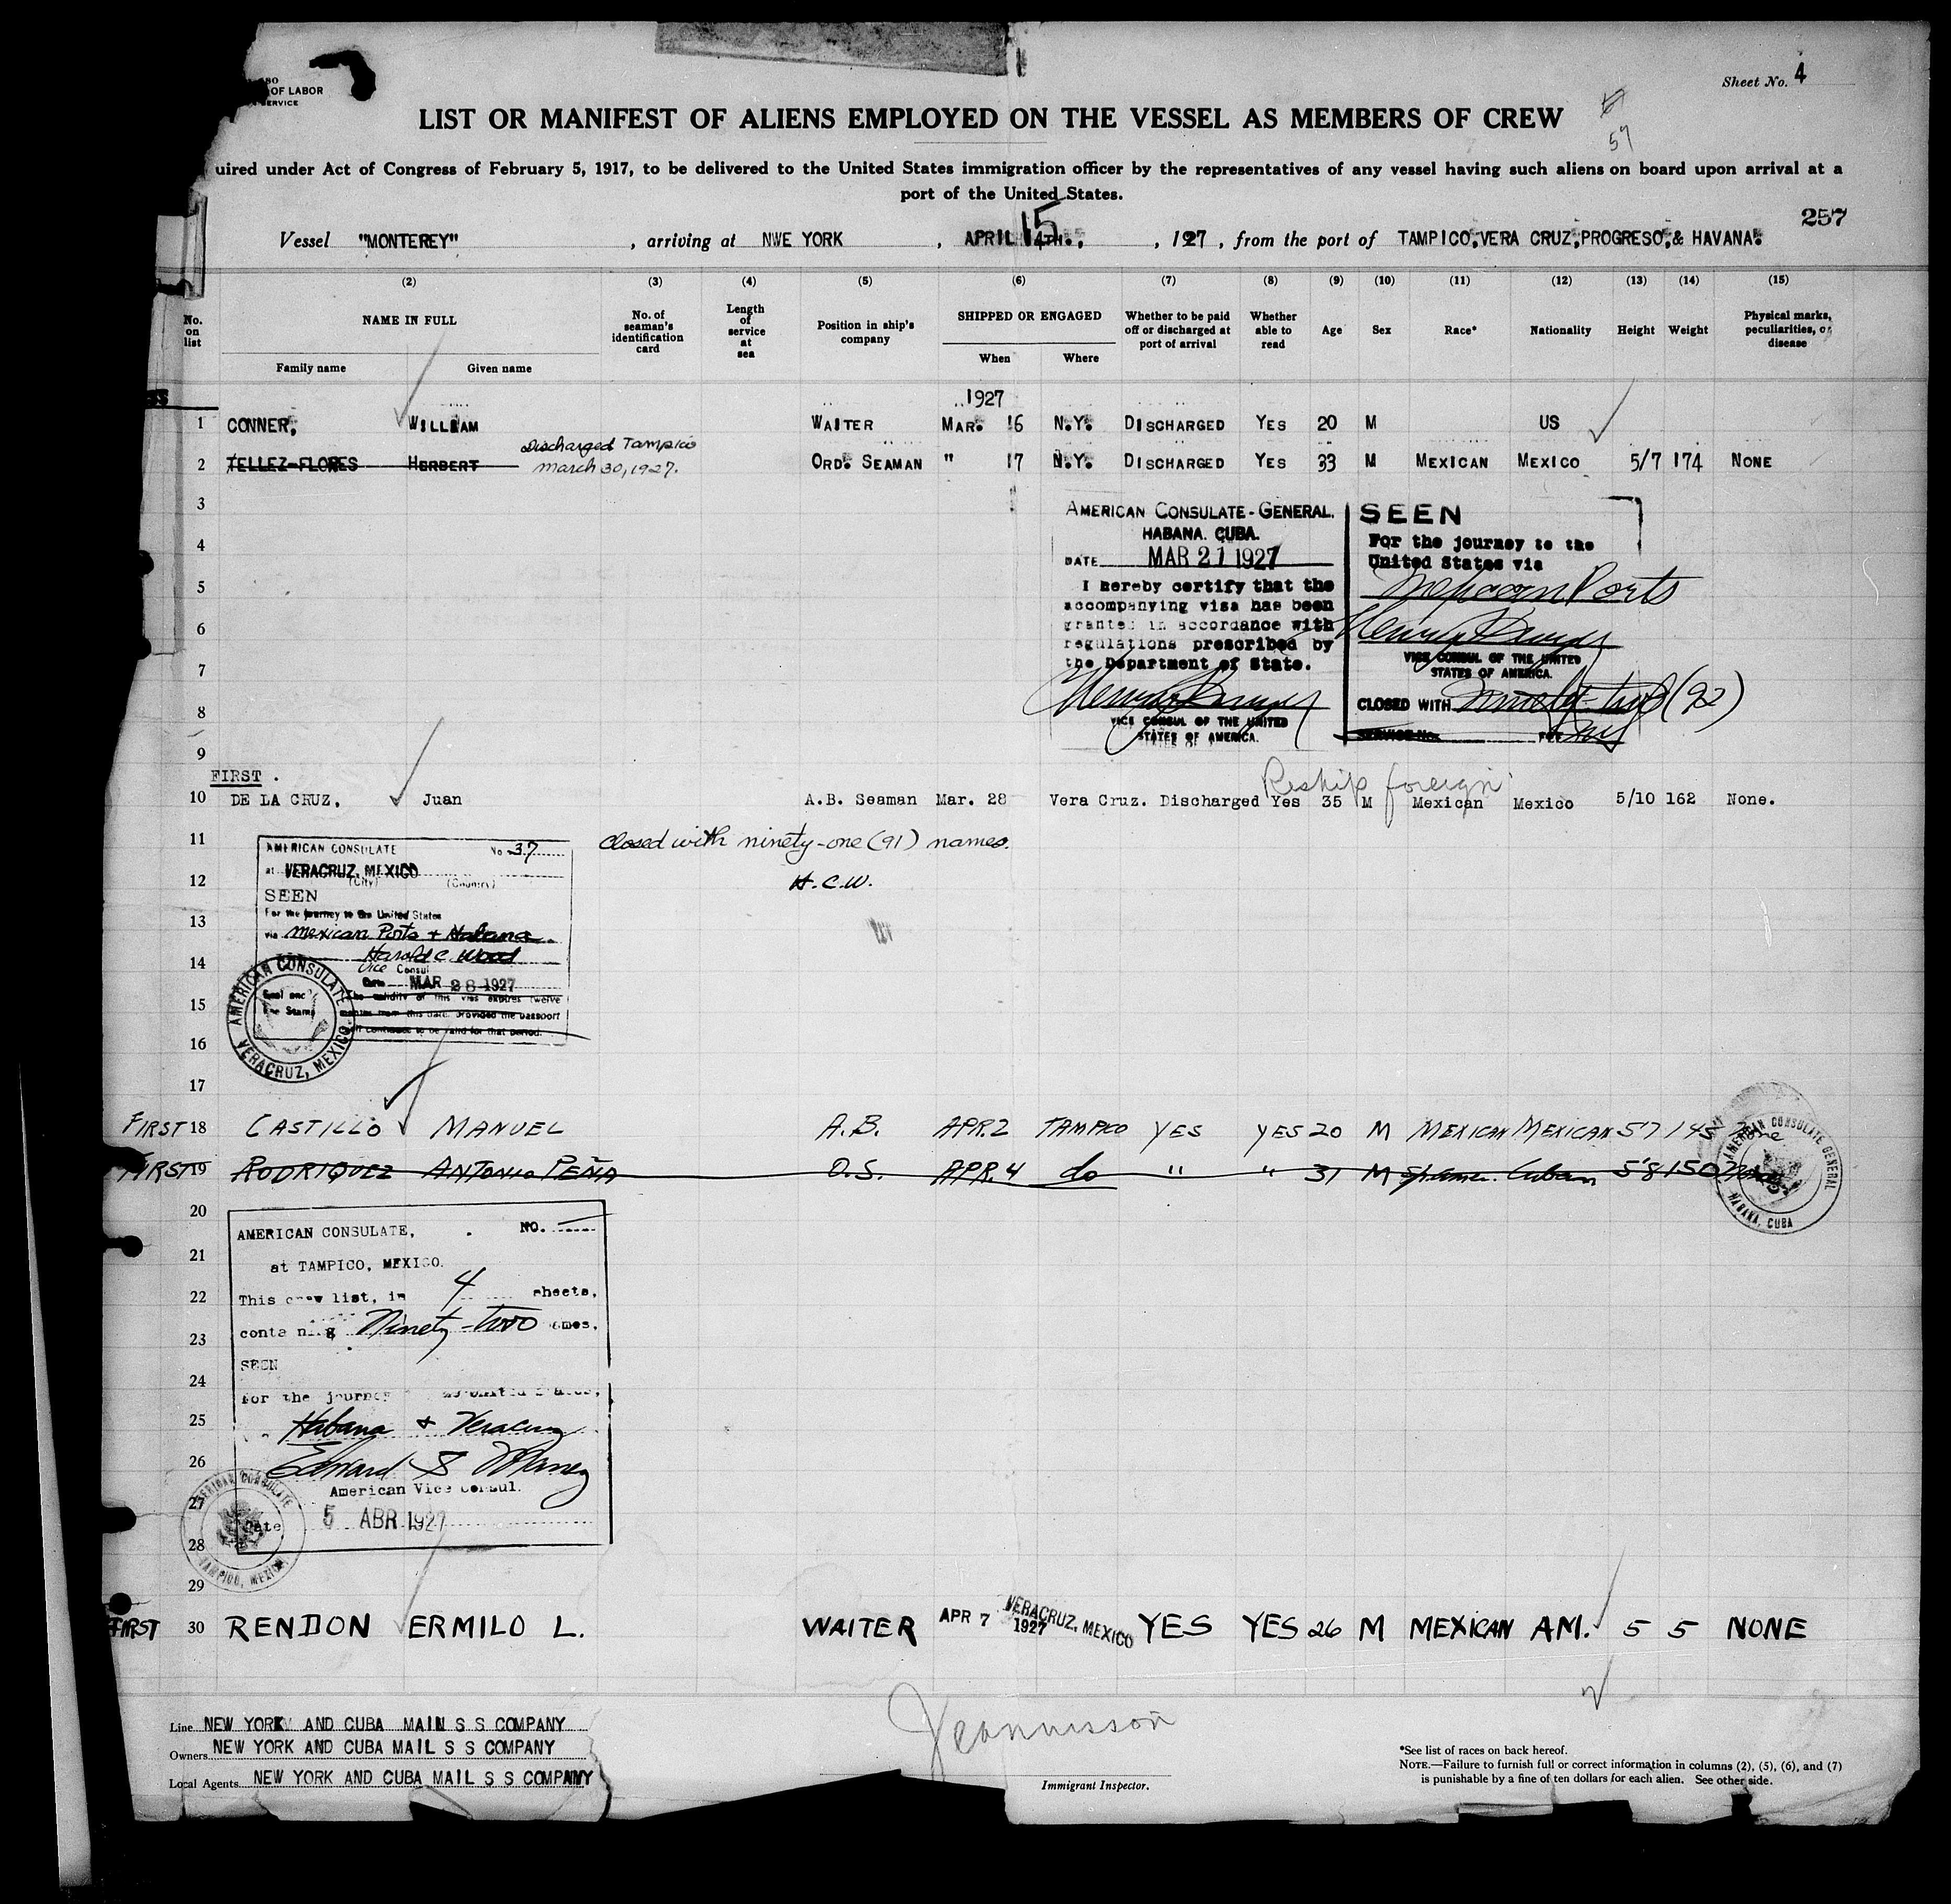 OF LABOR
SERVICE
Sheet No. 4
LIST OR MANIFEST OF ALIENS EMPLOYED ON THE VESSEL AS MEMBERS OF CREW
57
uired under Act of Congress of February 5, 1917, to be delivered to the United States immigration officer by the representatives of any vessel having such aliens on board upon arrival at a
port of the United States.
257
Vessel "MONTEREY" , arriving at NWE YORK , APRIL 15 4TH., , 1927 , from the port of TAMPICO,VERA CRUZ,PROGRESO,& HAVANA.
(2) (3) (4) (5) (6) (7) (8) (9) (10) (11) (12) (13) (14) (15)
No. on list NAME IN FULL Family name Given name No. of seaman's identification card Length of service at sea Position in ship's company SHIPPED OR ENGAGED When Where Whether to be paid off or discharged at port of arrival Whether able to read Age Sex Race* Nationality Height Weight Physical marks, peculiarities, or disease
1927
1 CONNER, WILLIAM WAITER MAR. 16 N.Y. DISCHARGED YES 20 M US
Discharged Tampico
2 TELLEZ-FLORES HERBERT March 30, 1927. ORD. SEAMAN " 17 N.Y. DISCHARGED YES 33 M MEXICAN MEXICO 5/7 174 NONE
3
4
5
6
7
8
9
AMERICAN CONSULATE-GENERAL.
HABANA. CUBA.
DATE MAR 21 1927
I hereby certify that the
accompanying visa has been
granted in accordance with
regulations prescribed by
the Department of State.
VICE CONSUL OF THE UNITED
STATES OF AMERICA.
SEEN
For the journey to the
United States via
Mexican Ports
VICE CONSUL OF THE UNITED
STATES OF AMERICA.
CLOSED WITH ninety-two (92)
SERVICE No.
FIRST .
Reship foreign
10 DE LA CRUZ, Juan A.B. Seaman Mar. 28 Vera Cruz. Discharged Yes 35 M Mexican Mexico 5/10 162 None.
11 Closed with ninety-one (91) names.
12 H.C.W.
13
14
15
16
17
AMERICAN CONSULATE No 37
at VERACRUZ, MEXICO
(City) (Country)
SEEN
For the journey to the United States
via Mexican Ports + Habana
Harold C. Wood
Vice Consul
Date MAR 28 1927
The validity of this visa expires twelve
months from this date. provided the passport
continues to be valid for that period.
AMERICAN CONSULATE
VERACRUZ, MEXICO
FIRST 18 CASTILLO MANUEL A.B. APR. 2 TAMPICO YES YES 20 M MEXICAN MEXICAN 5'7 145
FIRST 19 RODRIQUEZ ANTONIO PEÑA O.S. APR. 4 do " " 31 M Sp. Amer. Cuban 5'8 150 None
AMERICAN CONSULATE GENERAL
HABANA, CUBA
20
21
22
23
24
25
26
27
28
29
AMERICAN CONSULATE, NO.
at TAMPICO, MEXICO.
This crew list, in 4 sheets,
containing Ninety-two names.
SEEN
For the journey
Habana & Veracruz
American Vice Consul.
Date 5 ABR 1927
AMERICAN CONSULATE
TAMPICO, MEXICO
FIRST 30 RENDON ERMILO L. WAITER APR 7 1927 VERACRUZ, MEXICO YES YES 26 M MEXICAN AM. 5 5 NONE
Line NEW YORK AND CUBA MAIN S S COMPANY
Owners NEW YORK AND CUBA MAIL S S COMPANY
Local Agents NEW YORK AND CUBA MAIL S S COMPANY
Immigrant Inspector.
*See list of races on back hereof.
NOTE.—Failure to furnish full or correct information in columns (2), (5), (6), and (7)
is punishable by a fine of ten dollars for each alien. See other side.